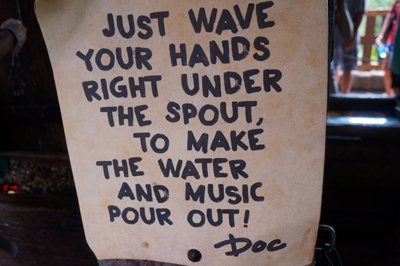 JUST WAVE
YOUR HANDS
RIGHT UNDER
THE SPOUT,
TO MAKE
THE WATER
AND MUSIC
POUR OUT!
Doc